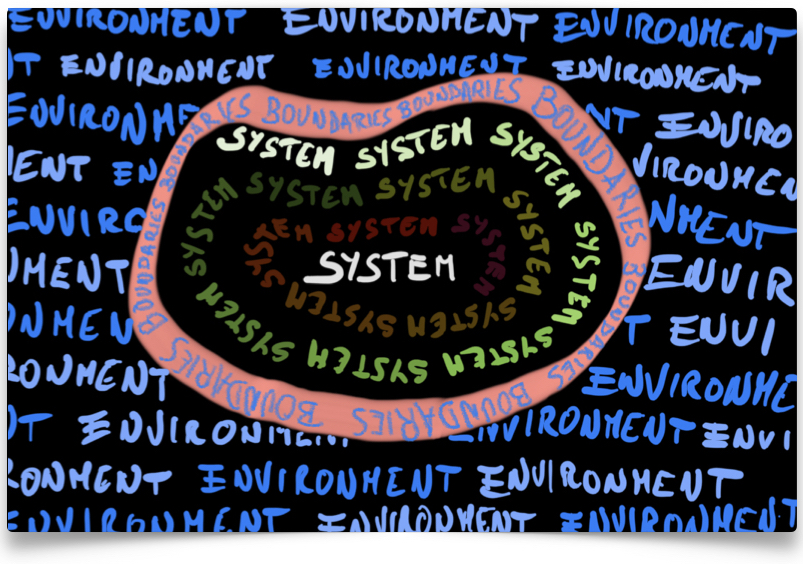 ENVIRONMENT ENVIRONMENT ENVIRONMENT
T ENVIRONMENT ENVIRONMENT ENVIRONMENT
ENVIRONME NT ENVIRO
MENT EN VIRONMEN
ENVIRO NMENT
MENT ENVIR
ONMEN T ENVI
ONMENT ENVIRONME
NT ENVIRONMENT ENVIRONMENT ENVI
RONMENT ENVIRONMENT ENVIRONMENT
ENVIRONMENT ENVIRONMENT ENVIRONMENT
BOUNDARIES BOUNDARIES BOUNDARIES BOUNDARIES BOUNDARIES BOUNDARIES BOUNDARIES BOUNDARIES
SYSTEM SYSTEM SYSTEM SYSTEM SYSTEM SYSTEM SYSTEM SYSTEM
SYSTEM SYSTEM SYSTEM SYSTEM SYSTEM SYSTEM SYSTEM SYSTEM
SYSTEM